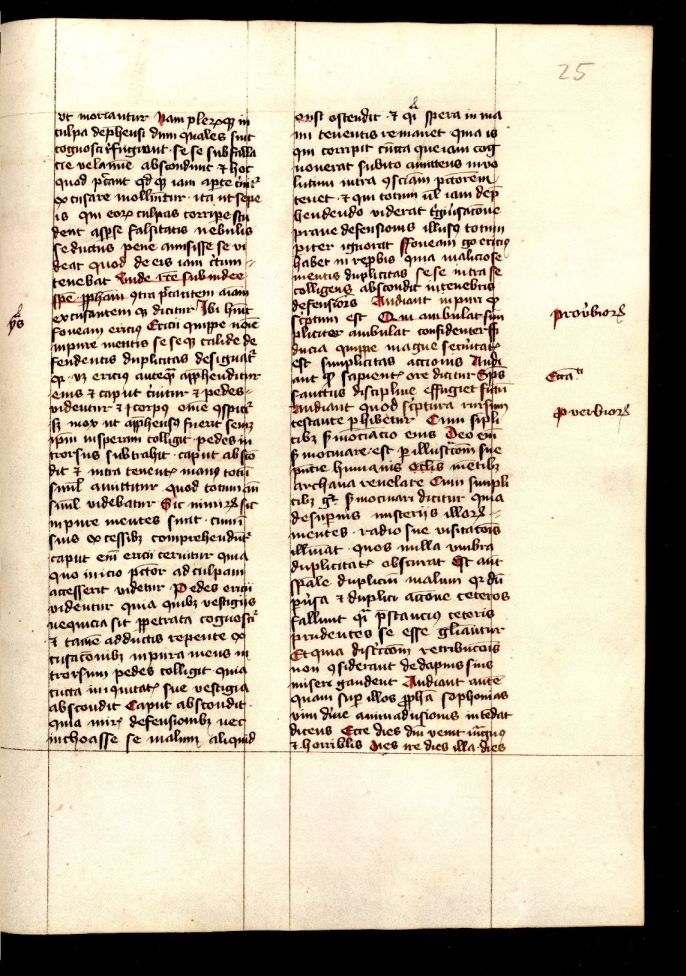 25
ut moriantur Nam pleꝝqꝫ in
culpa depħensi dum quales sint
cognosci refugiunt se se sub falla
cie velamine abscondunt ⁊ hoc
quod p̄cant qd qꝫ iam aperte cernit᷑
excusare moliuntur ita ut sepe
is qui eoꝝ culpas corripe stu
dent aspse falsitatis nebulis
seductus pene amisisse se vi
deat quod de eis iam c̄tum
tenebat Unde r̄cte sub iudee
spē ꝓpħam ꝯtra p̄cātem aīam
excusantem qꝫ dicitur Ibi huit
foueam ericius Ericii quippe noīe
inpure mentis se seqꝫ calide de
fendentis duplicitas designat᷑
qꝫ vꝫ ericius cum app̄henditur
eius ⁊ caput c̄nitur ⁊ pedes
videntur ⁊ corpus om̄e ꝯspicit᷑
sꝫ mox ut app̄hensus fuerit semꝫ
ip̄m in speram colligit pedes in
trorsus subtrahit caput absco
dit ⁊ intra tenent᷑ manꝰ totū
simul amittitur quod totum an
simul videbatur Sic nimiꝝ sic
inpure mentes sunt cum ī
suis excessibꝫ comprehendunt᷑
caput em̄ ericii cernitur quia
quo inicio p̄ctor ad culpam
accesserit videtur Pedes ericii
videntur quia quibꝫ vestigiis
nequicia sit ꝑpetrata cognoscit᷑
⁊ tamē adductis repente ex
cusacōnibꝫ inpura mens in
trorsum pedes colligit quia
cūcta iniquitat᷑ sue vestigia
abscondit Caput abscondit
quia miris defensionibꝫ nec
inchoasse se malum aliquid
ꝟs
ōnst ostendit ⁊ qī spera in ma
nu tenentis remanet quia is
qui corripit cūcta que iam cog
nouerat subito amittens inuo
lutum intra ꝯsciam p̄ctorem
tenet ⁊ qui totum iam dep̄
hendendo viderat
praue defensionis illusꝰ totum
piter ignorat Foueam go ericiꝰ
habet in rep̄bis quia maliciose
mentis duplicitas se se intra se
colligens abscondit in tenebris
defensōis Audiant inpuri qꝫ
sc̄ptum est Qui ambulat sim
pliciter ambulat confidenter ff
ducia quippe magne securitat᷑
est simplicitas accionis Audi
ant qꝫ sapient᷑ ore dicitur Sps
sanctus discipline effugiet fictū
Audiant quod sc̄ptura rursum
testante ꝑhibetur Cum simpli
cibꝫ s̄mocinacio eius Deo em̄
s̄mocinare est ꝑ illustr̄coēm sue
pn̄cie humanis mentibꝫ
archana reuelare Cum simpli
cibꝫ gͦ s̄mocinari dicitur quia
de suꝑnis misteriis illoꝝ
mentes radio sue visitacōis
illūiat quos nulla umbra
duplicitat᷑ obscurat Est aūt
sp̄ale duplicium malum qꝫ dū
ꝑūsa ⁊ duplici accōne ceteros
fallunt qͣ p̄stancius ceteris
prudentes se esse gl̄iantur
Et quia distr̄coēm retribucōis
non ꝯsiderant de dāpnis suis
miseri gaudent Audiant autē
quam sup illos ꝓpħa sophonias
vim diuīe animaduersionis intēdat
dicens Ecce dies dn̄i venit magnꝰ
⁊ horribilis Dies ire dies illa dies
prouerbioꝝ
Ecc̄ia
ꝓuerbioꝝ